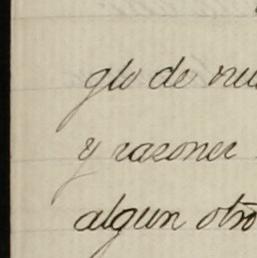 glo de nu
y razones
algun otro